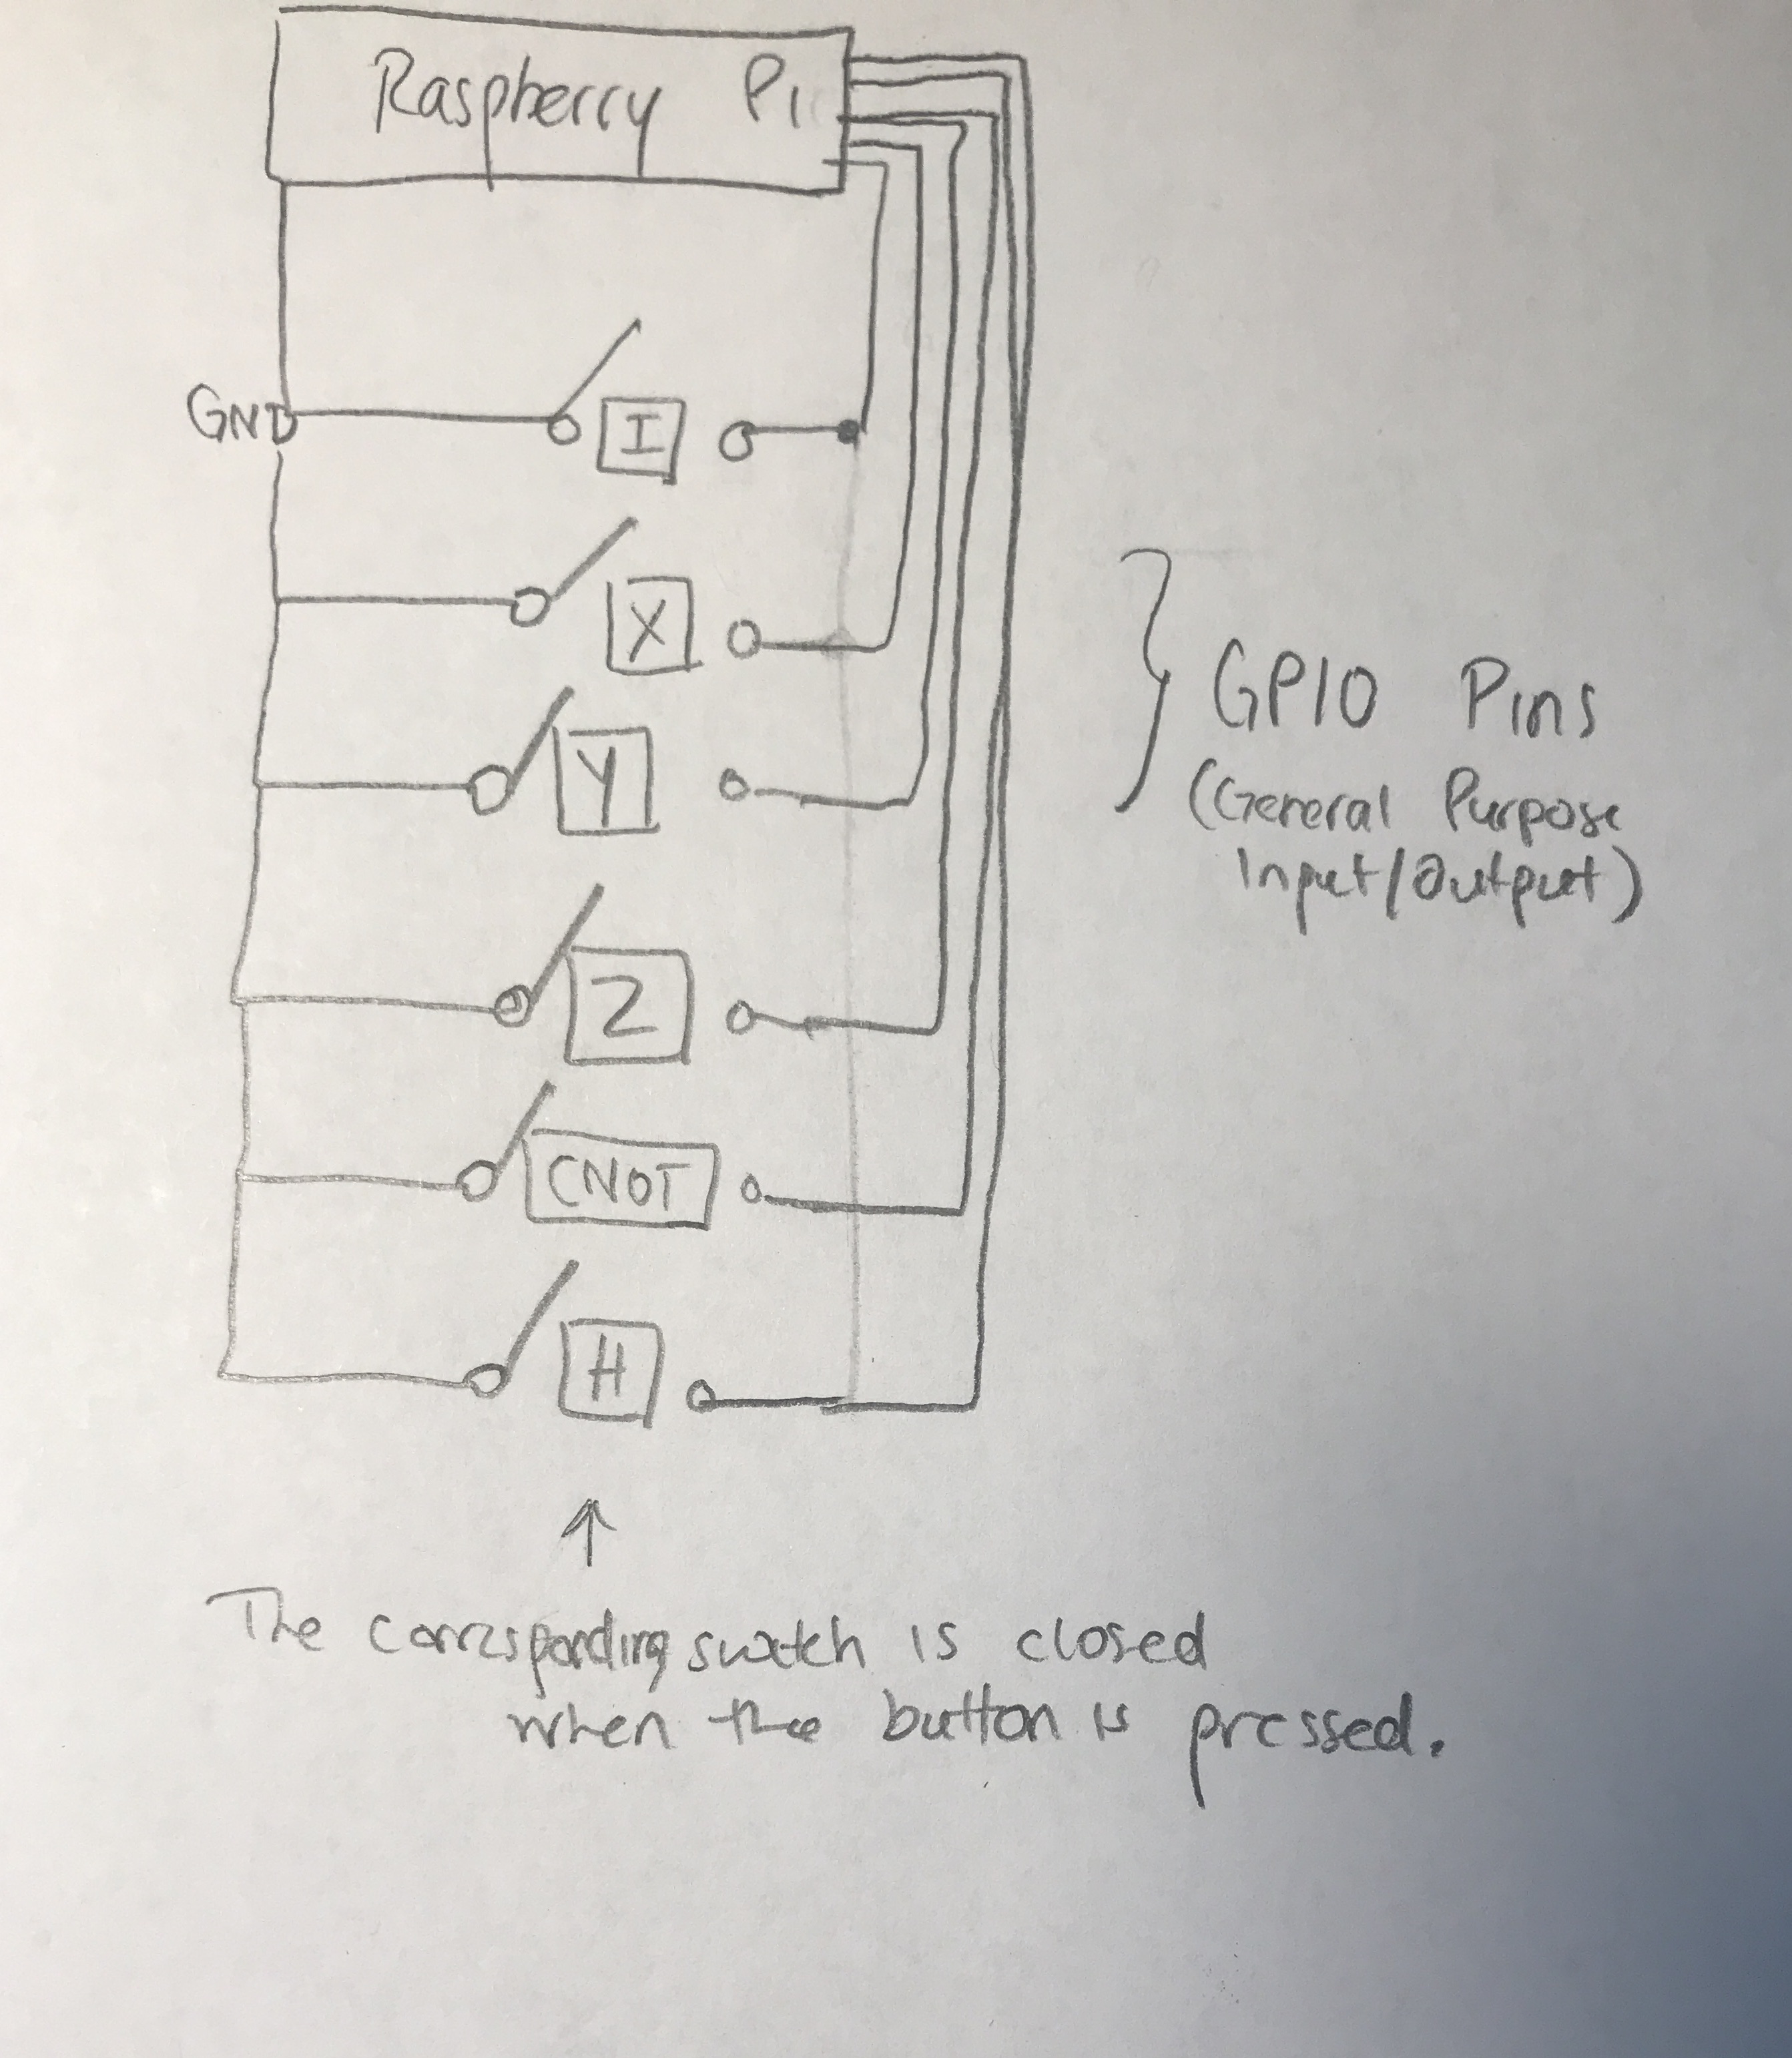 Raspberry Pi
GND
I
X
Y
Z
CNOT
H
GPIO Pins
(General Purpose
Input/Output)
The corresponding switch is closed
when the button is pressed.